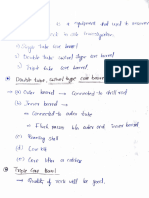 is a equipment that used to
in site investigation.
i) Single tube core barrel
ii) Double tube swivel type core barrel
iii) Triple tube core barrel
Double tube swivel type core barrel
(a) Outer barrel → Connected to drill rod
(b) Inner barrel →
→ Connected to outer tube
→ Flush passes b/w outer and inner barrel
(c) Reaming shell
(d) Core bit
(e) Core lifter
Triple Core Barrel
→ Quality of core will be good.